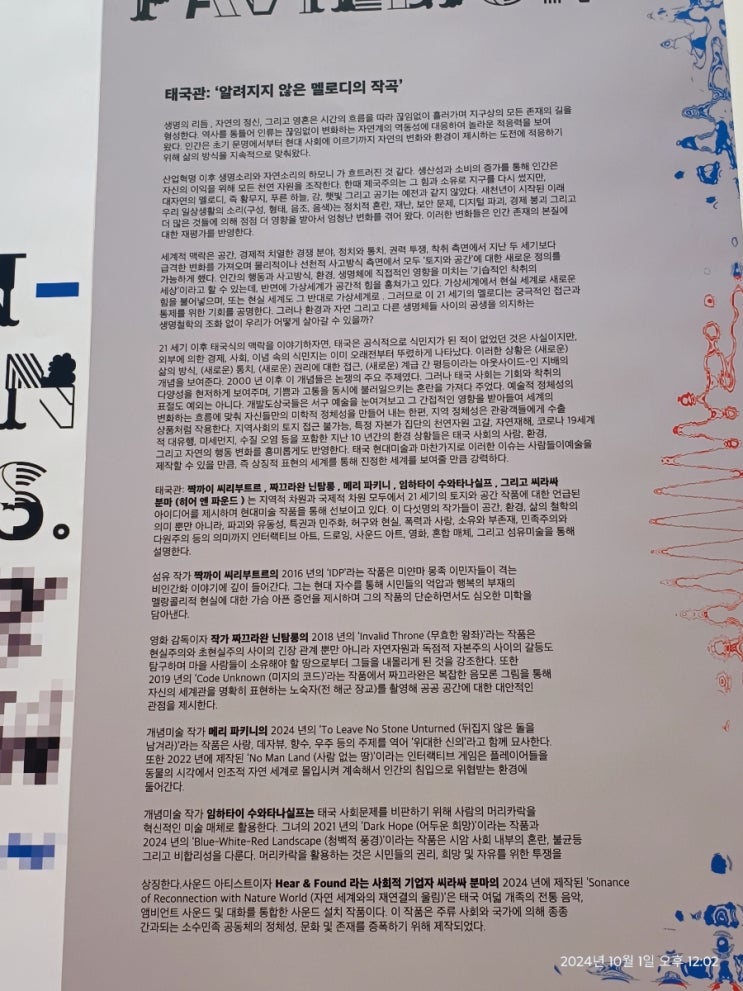 PAVILION
태국관: ‘알려지지 않은 멜로디의 작곡’
생명의 리듬 , 자연의 정신, 그리고 영혼은 시간의 흐름을 따라 끊임없이 흘러가며 지구상의 모든 존재의 길을
형성한다. 역사를 통틀어 인류는 끊임없이 변화하는 자연계의 역동성에 대응하여 놀라운 적응력을 보여
왔다. 인간은 초기 문명에서부터 현대 사회에 이르기까지 자연의 변화와 환경이 제시하는 도전에 적응하기
위해 삶의 방식을 지속적으로 맞춰왔다.
산업혁명 이후 생명소리와 자연소리의 하모니 가 흐트러진 것 같다. 생산성과 소비의 증가를 통해 인간은
자신의 이익을 위해 모든 천연 자원을 조작한다. 한때 제국주의는 그 힘과 소유로 지구를 다시 썼지만,
대자연의 멜로디, 즉 황무지, 푸른 하늘, 강, 햇빛 그리고 공기는 예전과 같지 않았다. 새천년이 시작된 이래
우리 일상생활의 소리(구성, 형태, 음조, 음색)는 정치적 혼란, 재난, 보안 문제, 디지털 파괴, 경제 붕괴 그리고
더 많은 것들에 의해 점점 더 영향을 받아서 엄청난 변화를 겪어 왔다. 이러한 변화들은 인간 존재의 본질에
대한 재평가를 반영한다.
세계적 맥락은 공간, 경제적 치열한 경쟁 분야, 정치와 통치, 권력 투쟁, 착취 측면에서 지난 두 세기보다
급격한 변화를 가져오며 물리적이나 선천적 사고방식 측면에서 모두 '토지와 공간'에 대한 새로운 정의를
가능하게 했다. 인간의 행동과 사고방식, 환경, 생명체에 직접적인 영향을 미치는 '기습적인 착취의
세상'이라고 할 수 있는데, 반면에 가상세계가 공간적 힘을 훔쳐가고 있다. 가상세계에서 현실 세계로 새로운
힘을 불어넣으며, 또는 현실 세계도 그 반대로 가상세계로 . 그러므로 이 21 세기의 멜로디는 궁극적인 접근과
통제를 위한 기회를 공명한다. 그러나 환경과 자연 그리고 다른 생명체들 사이의 공생을 의지하는
생명철학의 조화 없이 우리가 어떻게 살아갈 수 있을까?
21 세기 이후 태국식의 맥락을 이야기하자면, 태국은 공식적으로 식민지가 된 적이 없었던 것은 사실이지만,
외부에 의한 경제, 사회, 이념 속의 식민지는 이미 오래전부터 뚜렷하게 나타났다. 이러한 상황은 (새로운)
삶의 방식, (새로운) 통치, (새로운) 권리에 대한 접근, (새로운) 계급 간 평등이라는 아웃사이드-인 지배의
개념을 보여준다. 2000 년 이후 이 개념들은 논쟁의 주요 주제였다. 그러나 태국 사회는 기회와 착취의
다양성을 현저하게 보여주며, 기쁨과 고통을 동시에 불러일으키는 혼란을 가져다 주었다. 예술적 정체성의
표절도 예외는 아니다. 개발도상국들은 서구 예술을 눈여겨보고 그 간접적인 영향을 받아들여 세계의
변화하는 흐름에 맞춰 자신들만의 미학적 정체성을 만들어 내는 한편, 지역 정체성은 관광객들에게 수출
상품처럼 작용한다. 지역사회의 토지 접근 불가능, 특정 자본가 집단의 천연자원 고갈, 자연재해, 코로나 19세계
적 대유행, 미세먼지, 수질 오염 등을 포함한 지난 10 년간의 환경 상황들은 태국 사회의 사람, 환경,
그리고 자연의 행동 변화를 흥미롭게도 반영한다. 태국 현대미술과 마찬가지로 이러한 이슈는 사람들이예술을
제작할 수 있을 만큼, 즉 상징적 표현의 세계를 통해 진정한 세계를 보여줄 만큼 강력하다.
태국관: 짹까이 씨리부트르 , 짜끄라완 닌탐롱 , 메리 파키니 , 임하타이 수와타나실프 , 그리고 씨라싸
분마 (히어 엔 파운드 ) 는 지역적 차원과 국제적 차원 모두에서 21 세기의 토지와 공간 작품에 대한 언급된
아이디어를 제시하며 현대미술 작품을 선보이고 있다. 이 다섯명의 작가들이 공간, 환경, 삶의 철학의
의미 뿐만 아니라, 파괴와 유동성, 특권과 민주화, 허구와 현실, 폭력과 사랑, 소유와 부존재, 민족주의와
다원주의 등의 의미까지 인터랙티브 아트, 드로잉, 사운드 아트, 영화, 혼합 매체, 그리고 섬유미술을 통해
설명한다.
섬유 작가 짹까이 씨리부트르의 2016 년의 'IDP'라는 작품은 미얀마 몽족 이민자들이 겪는
비인간화 이야기에 깊이 들어간다. 그는 현대 자수를 통해 시민들의 억압과 행복의 부재의
멜랑콜리적 현실에 대한 가슴 아픈 증언을 제시하며 그의 작품의 단순하면서도 심오한 미학을
담아낸다.
영화 감독이자 작가 짜끄라완 닌탐롱의 2018 년의 'Invalid Throne (무효한 왕좌)'라는 작품은
현실주의와 초현실주의 사이의 긴장 관계 뿐만 아니라 자연자원과 독점적 자본주의 사이의 갈등도
탐구하며 마을 사람들이 소유해야 할 땅으로부터 그들을 내몰리게 된 것을 강조한다. 또한
2019 년의 'Code Unknown (미지의 코드)'라는 작품에서 짜끄라완은 복잡한 음모론 그림을 통해
자신의 세계관을 명확히 표현하는 노숙자(전 해군 장교)를 촬영해 공공 공간에 대한 대안적인
관점을 제시한다.
개념미술 작가 메리 파키니의 2024 년의 'To Leave No Stone Unturned (뒤집지 않은 돌을
남겨라)'라는 작품은 사랑, 데자뷰, 향수, 우주 등의 주제를 엮어 '위대한 신의'라고 함께 묘사한다.
또한 2022 년에 제작된 'No Man Land (사람 없는 땅)'이라는 인터랙티브 게임은 플레이어들을
동물의 시각에서 인조적 자연 세계로 몰입시켜 계속해서 인간의 침입으로 위협받는 환경에
들어간다.
개념미술 작가 임하타이 수와타나실프는 태국 사회문제를 비판하기 위해 사람의 머리카락을
혁신적인 미술 매체로 활용한다. 그녀의 2021 년의 'Dark Hope (어두운 희망)'이라는 작품과
2024 년의 'Blue-White-Red Landscape (청백적 풍경)'이라는 작품은 시암 사회 내부의 혼란, 불균등
그리고 비합리성을 다룬다. 머리카락을 활용하는 것은 시민들의 권리, 희망 및 자유를 위한 투쟁을
상징한다.사운드 아티스트이자 Hear & Found 라는 사회적 기업자 씨라싸 분마의 2024 년에 제작된 'Sonance
of Reconnection with Nature World (자연 세계와의 재연결의 울림)'은 태국 여덟 개족의 전통 음악,
앰비언트 사운드 및 대화를 통합한 사운드 설치 작품이다. 이 작품은 주류 사회와 국가에 의해 종종
간과되는 소수민족 공동체의 정체성, 문화 및 존재를 증폭하기 위해 제작되었다.
2024년 10월 1일 오후 12:02